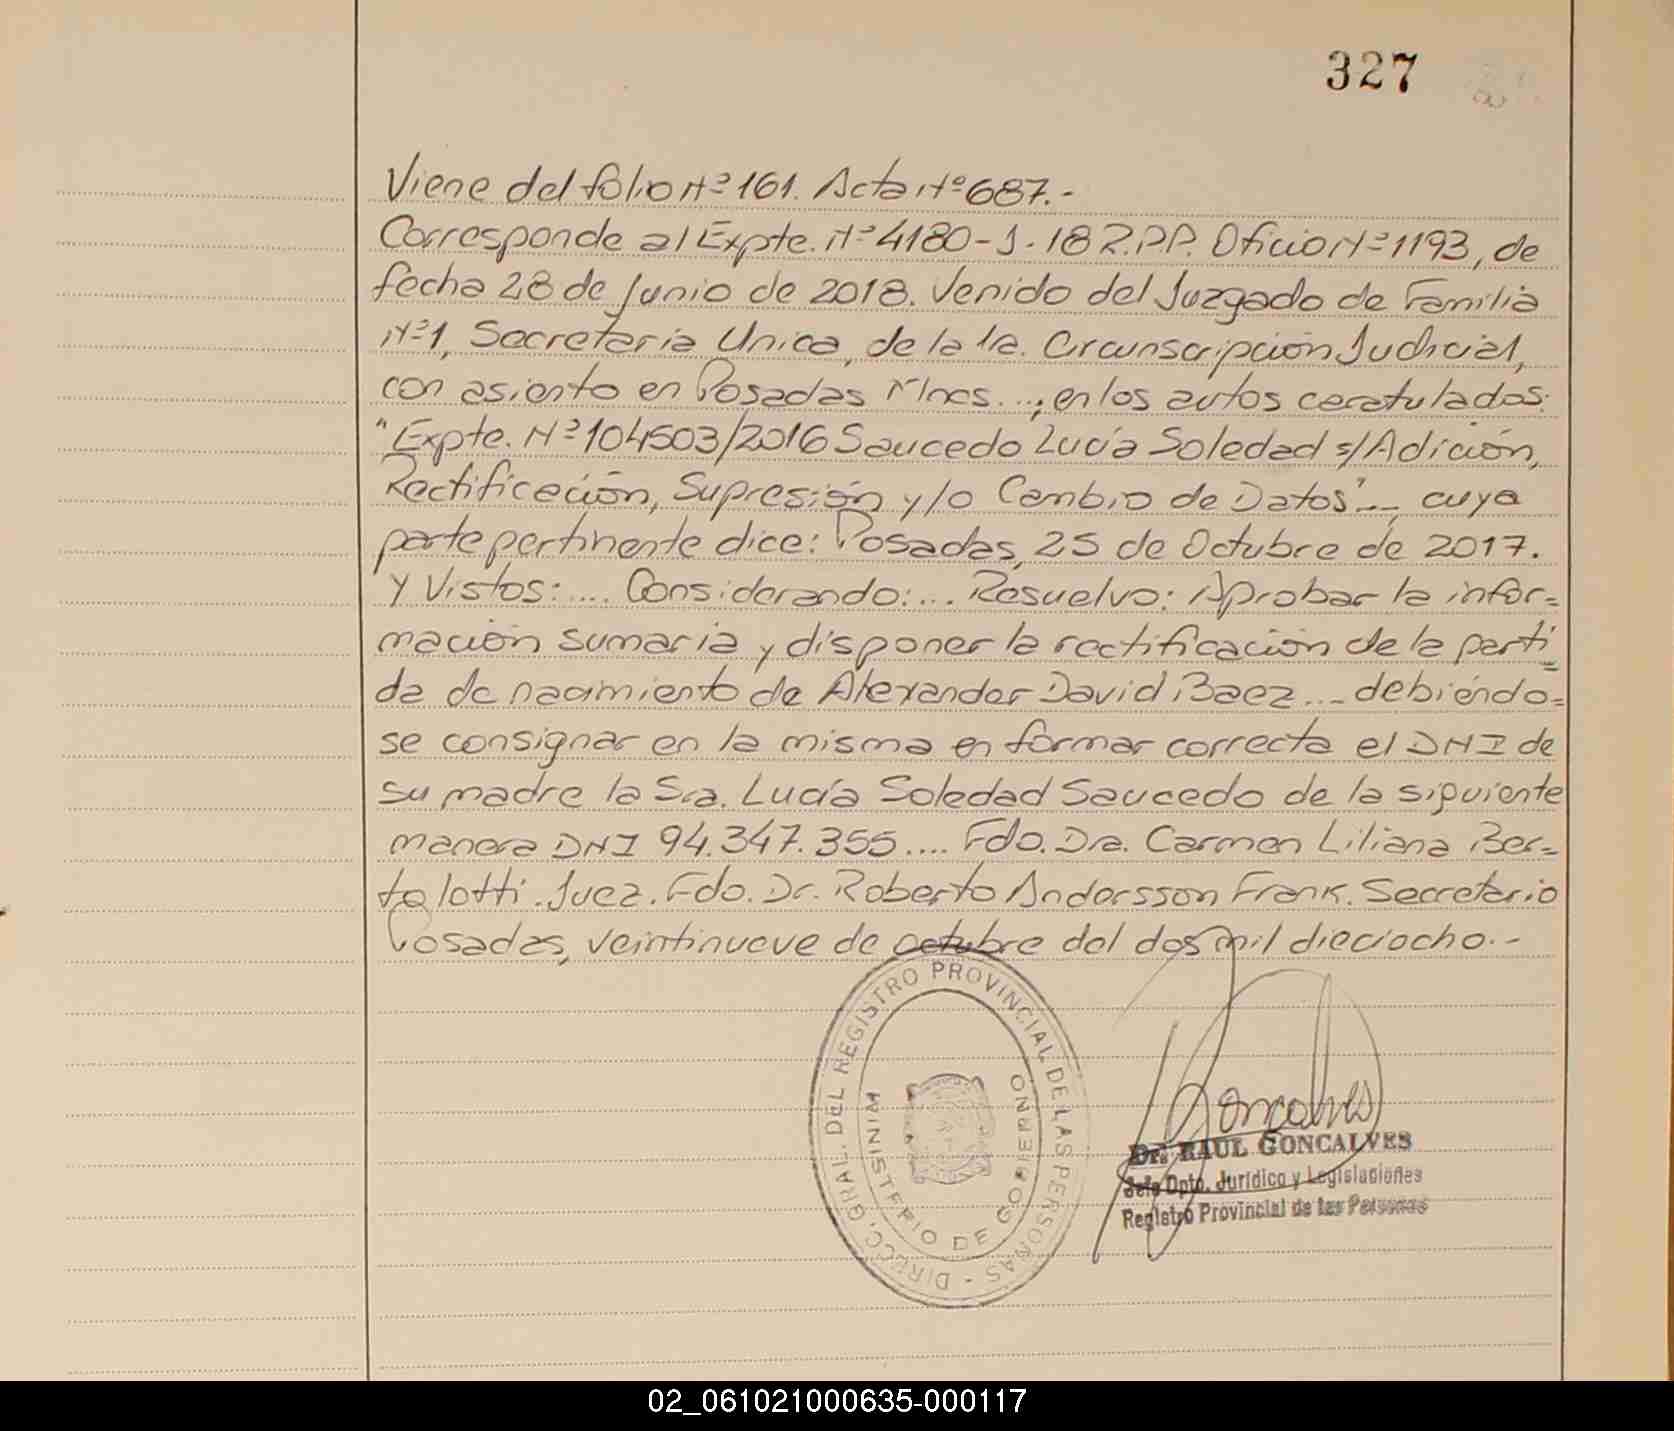 327
Viene del folio Nº 161. Acta Nº 687.-
Corresponde al Expte. Nº 4180-J-18 R.P.P. Oficio Nº 1193, de
fecha 28 de Junio de 2018. Venido del Juzgado de Familia
Nº1, Secretaría Unica, de la 1ra. Circunscripción Judicial,
con asiento en Posadas Mnes...; en los autos caratulados:
"Expte. Nº 104503/2016 Saucedo Lucía Soledad s/Adición,
Rectificación, Supresión y/o Cambio de Datos"... cuya
parte pertinente dice: Posadas, 25 de Octubre de 2017.
Y Vistos:.... Considerando:... Resuelvo: Aprobar la infor=
mación sumaria y disponer la rectificación de la parti=
da de nacimiento de Alexander David Baez... debiéndo=
se consignar en la misma en formar correcta el DNI de
su madre la Sra. Lucía Soledad Saucedo de la siguiente
manera DNI 94.347.355.... Fdo. Dra. Carmen Liliana Ber=
talotti. Juez. Fdo. Dr. Roberto Andersson Frank. Secretario
Posadas, veintinueve de octubre del dos mil dieciocho.-
DIRECC. GRAL. DEL REGISTRO PROVINCIAL DE LAS PERSONAS -
MINISTERIO DE GOBIERNO
Goncalves
Dr. RAUL GONCALVES
Jefe Dpto. Jurídico y Legislaciones
Registro Provincial de las Personas
02_061021000635-000117